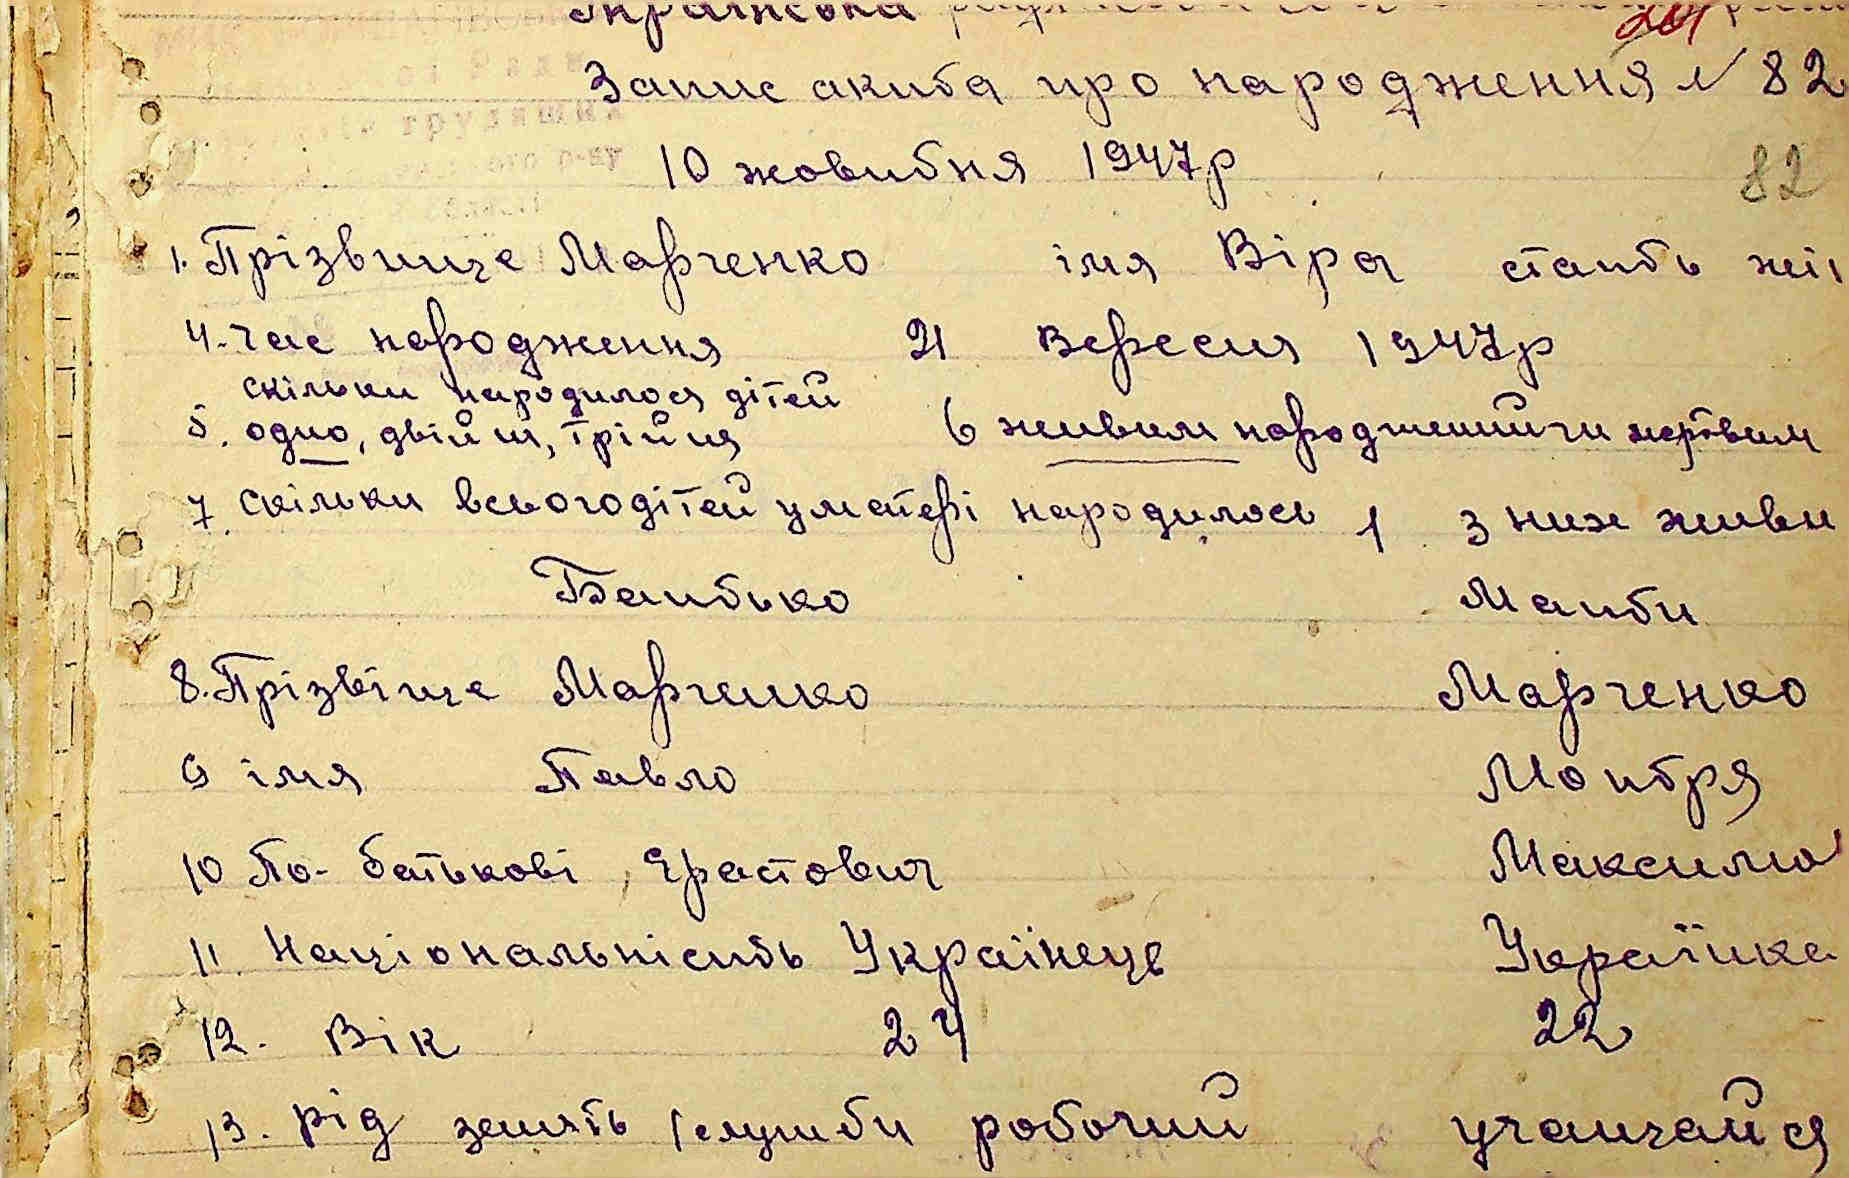 Українська
Запис акта про народження N 82
10 жовтня 1947р
82
1. Прізвище Марченко імя Віра стать жі
4. час народження 21 Вересня 1947р
скільки народилося дітей
5. одно, двійня, трійня 6 живим народженний чи мертвим
7 скільки всього дітей у матері народилось 1 з них живи
Батько Мати
8. Прізвіще Марченко Марченко
9 імя Павло Мотря
10 По-батькові Ерастович Максимо
11. Національність Українець Українка
12. Вік 24 22
13. рід занять (служби робочий